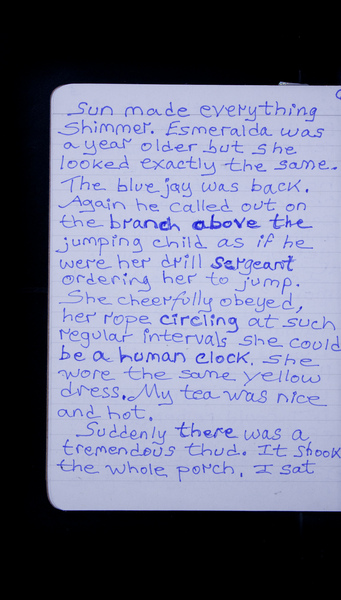 Sun made everything
Shimmer. Esmeralda was
a year older but she
looked exactly the same.
The blue jay was back.
Again he called out on
the branch above the
jumping child as if he
were her drill sergeant
ordering her to jump.
She cheerfully obeyed,
her rope circling at such
regular intervals she could
be a human clock. She
wore the same yellow
dress. My tea was nice
and hot.
Suddenly there was a
tremendous thud. It shook
the whole porch. I sat